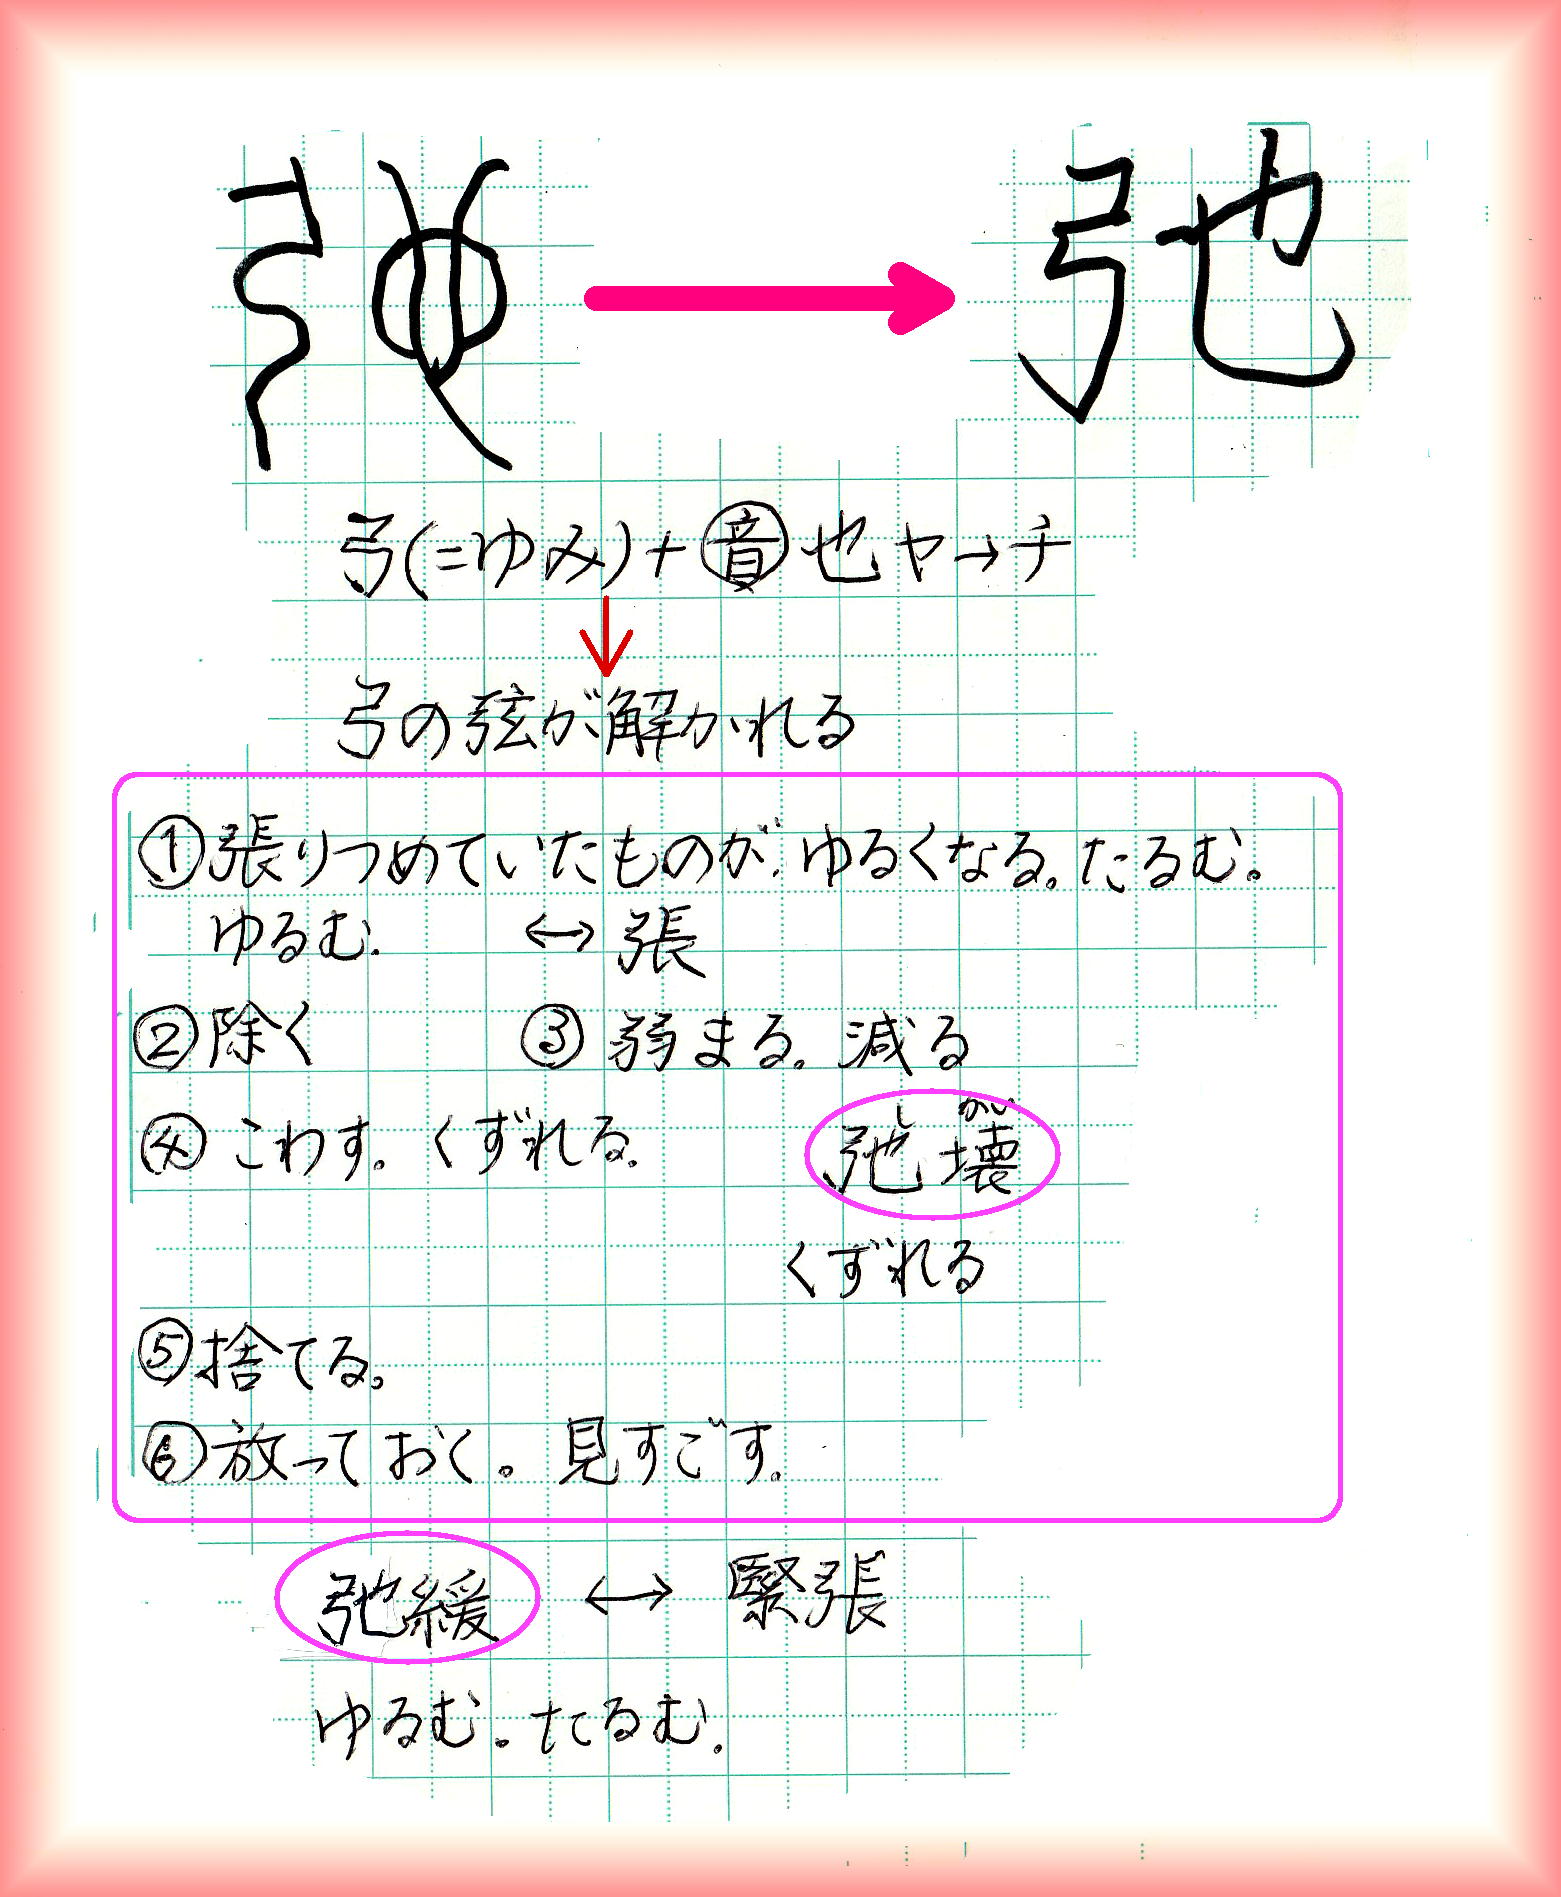 弛
弓(=ゆみ)+音也ヤ→チ
弓の弦が解かれる
①張りつめていたものが、ゆるくなる。たるむ。
ゆるむ。 ↔ 張
②除く ③弱まる。減る
④こわす。くずれる。 弛壊
し がい
くずれる
⑤捨てる。
⑥放っておく。見すごす。
弛緩 ↔ 緊張
ゆるむ。たるむ。